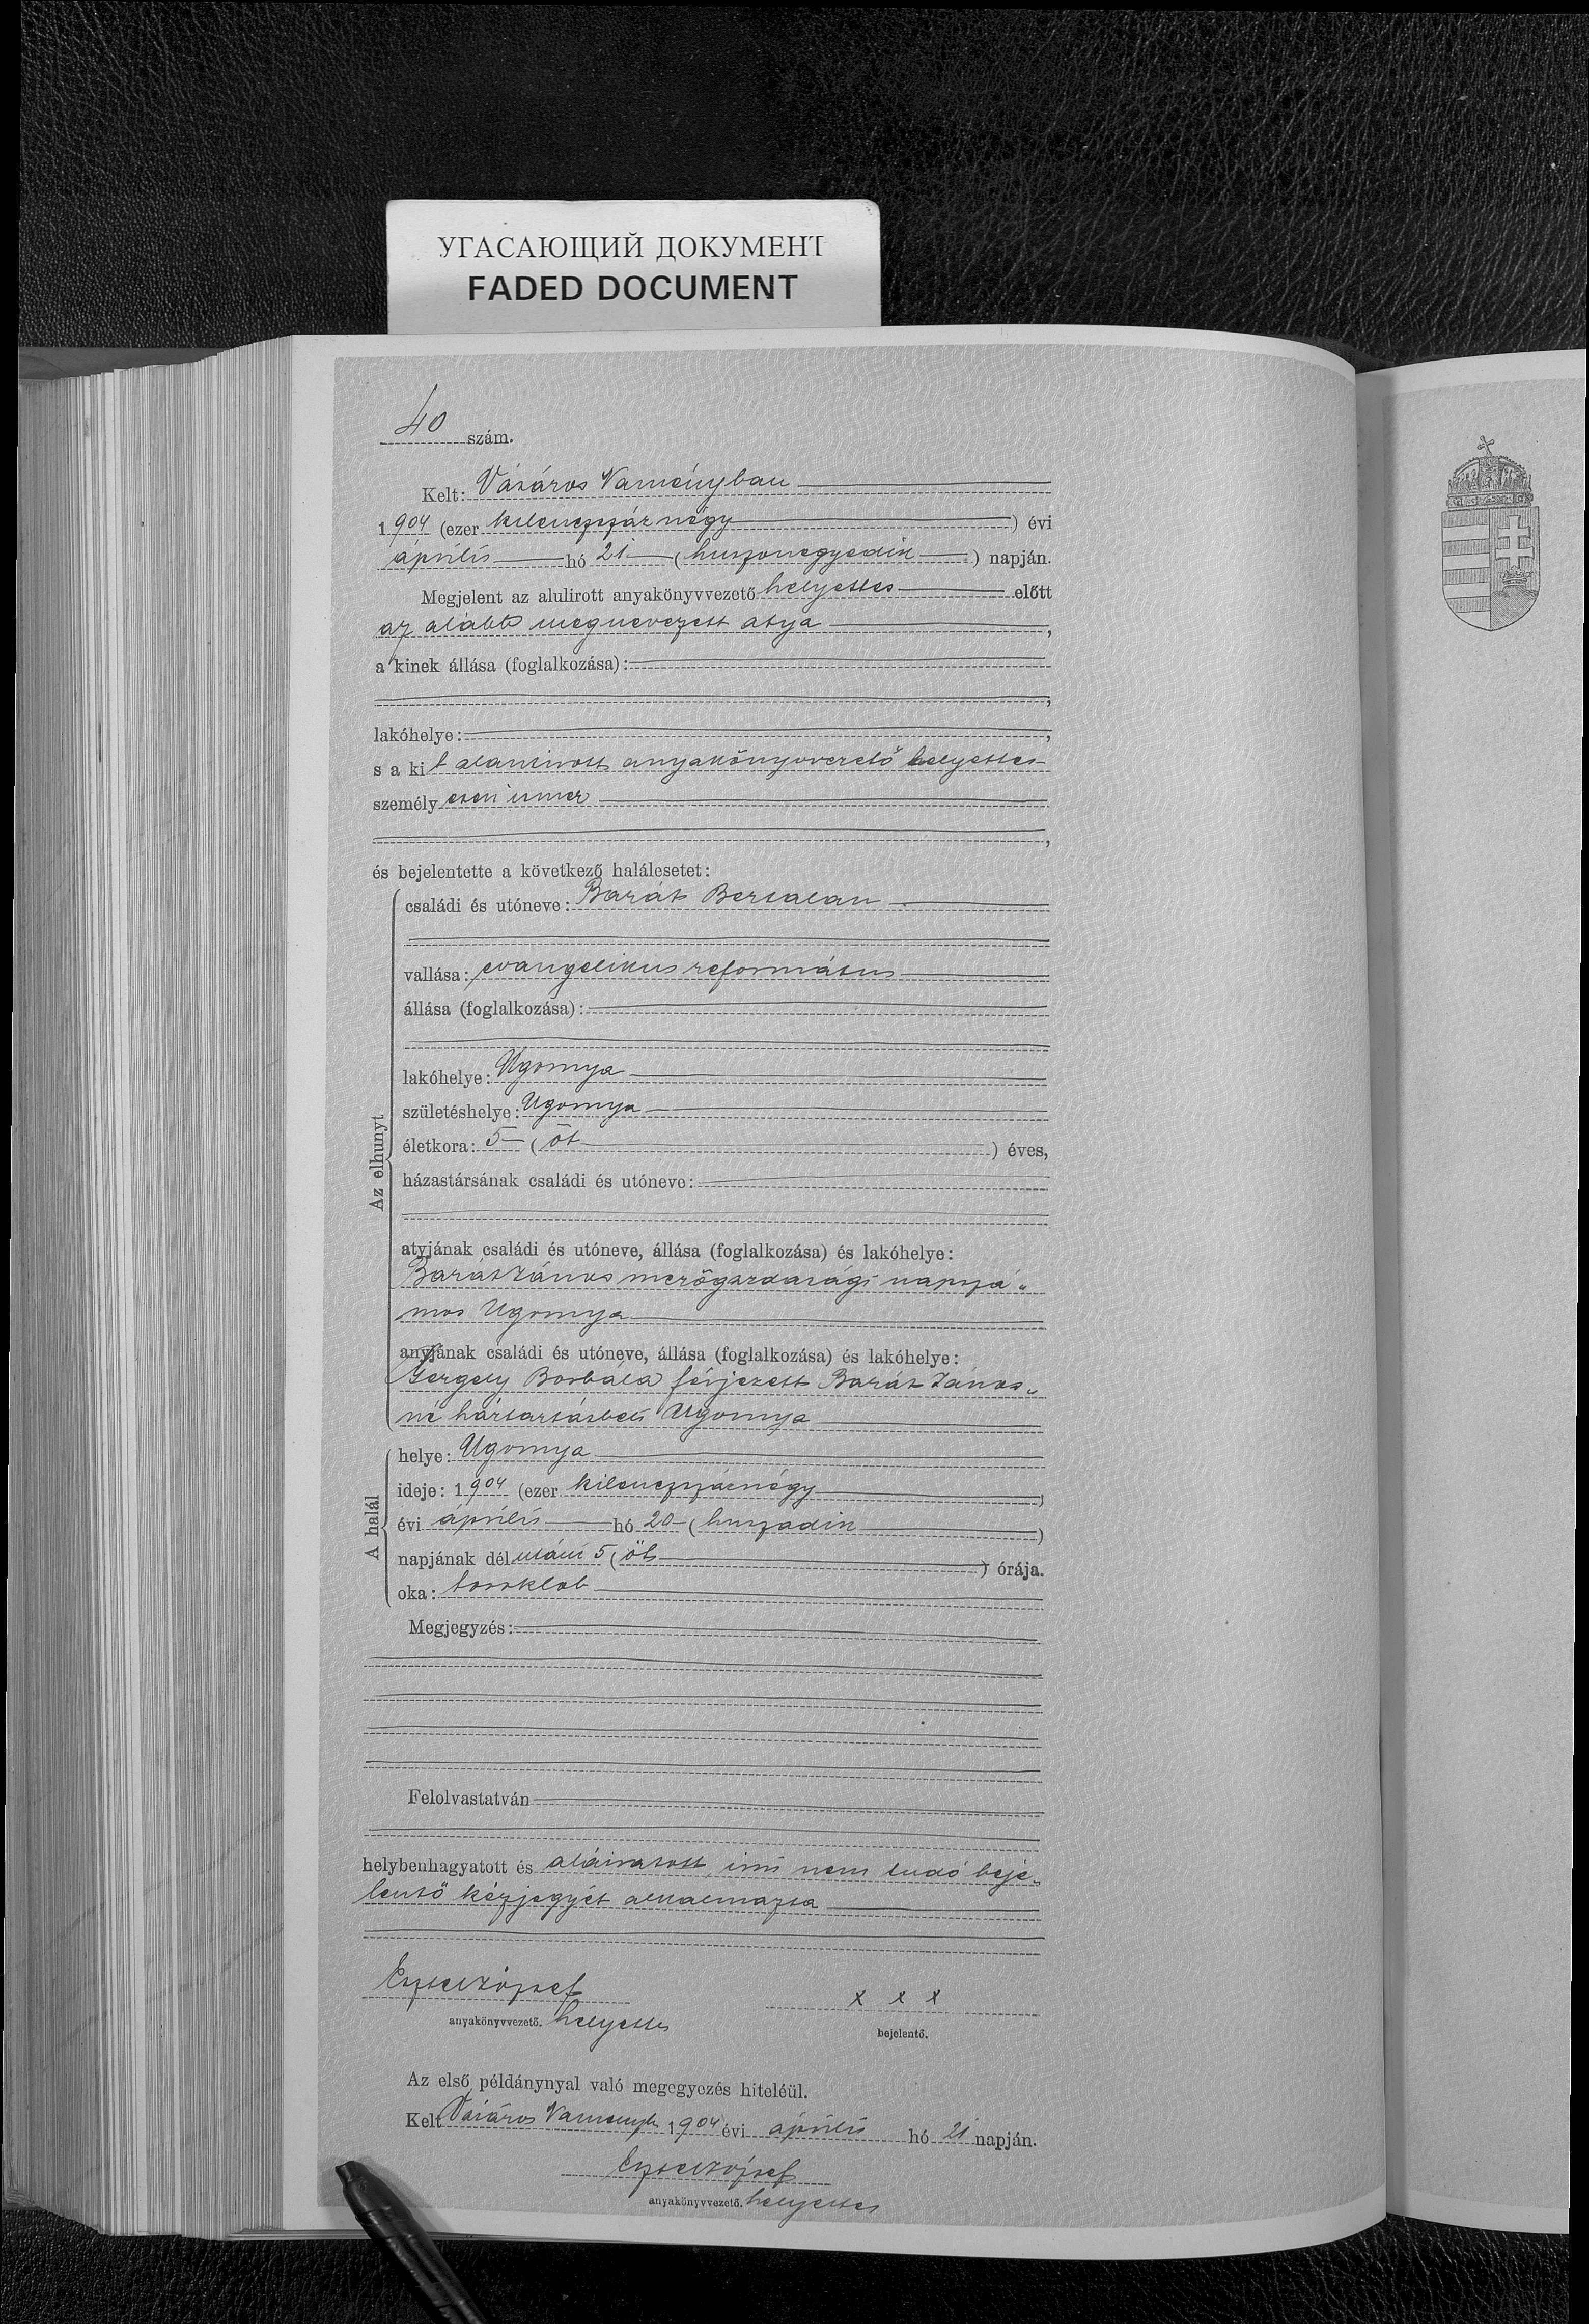 УГАСАЮЩИЙ ДОКУМЕНТ
FADED DOCUMENT
40 szám.
Kelt: Vásáros Naményban
1904 (ezer kilenczszáz négy) évi
április hó 21 (huszonegyedik) napján.
Megjelent az alulirott anyakönyvvezető helyettes előtt
az alább megnevezett atya,
a kinek állása (foglalkozása):
lakóhelye:
s a kit alantirott anyakönyvvezető helyettes
személyesen ismer
és bejelentette a következő halálesetet:
Az elhunyt
családi és utóneve: Barát Bertalan
vallása: evangelikus református
állása (foglalkozása):
lakóhelye: Ugornya
születéshelye: Ugornya
életkora: 5 (öt) éves,
házastársának családi és utóneve:
atyjának családi és utóneve, állása (foglalkozása) és lakóhelye:
Barát János mezőgazdasági napszá„
mos Ugornya
anyjának családi és utóneve, állása (foglalkozása) és lakóhelye:
Gergely Borbála férjezett Barát János„
né háztartásbeli Ugornya
A halál
helye: Ugornya
ideje: 1904 (ezer kilenczszáznégy)
évi április hó 20 (huszadik)
napjának délutáni 5 (öt) órája.
oka: toroklob
Megjegyzés:
Felolvastatván
helybenhagyatott és aláiratott, irni nem tudó beje„
lentő kézjegyét alkalmazta
József
anyakönyvvezető. helyettes
x x x
bejelentő.
Az első példánynyal való megegyezés hiteléül.
Kelt Vásáros Naményb 1904 évi április hó 21 napján.
József
anyakönyvvezető. helyettes